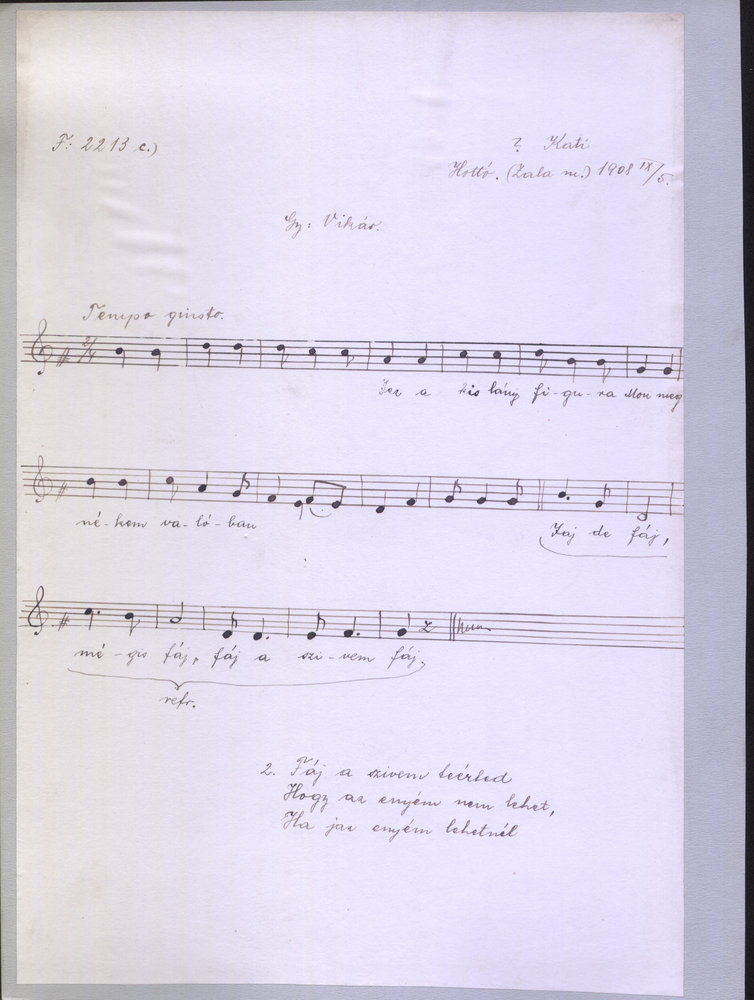 F: 2213 c.)
? Kati
Hottó. (Zala m.) 1908 IX/5.
Gy: Vikár.
Tempo giusto.
2/4
Jez a kis lány fi-gu-ra Mon meg
né-kem va-ló-ban
Jaj de fáj,
mé-gis fáj, fáj a szi-vem fáj,
refr.
2. Fáj a szivem teérted
Hogy az enyém nem lehet,
Ha jaz enyém lehetnél